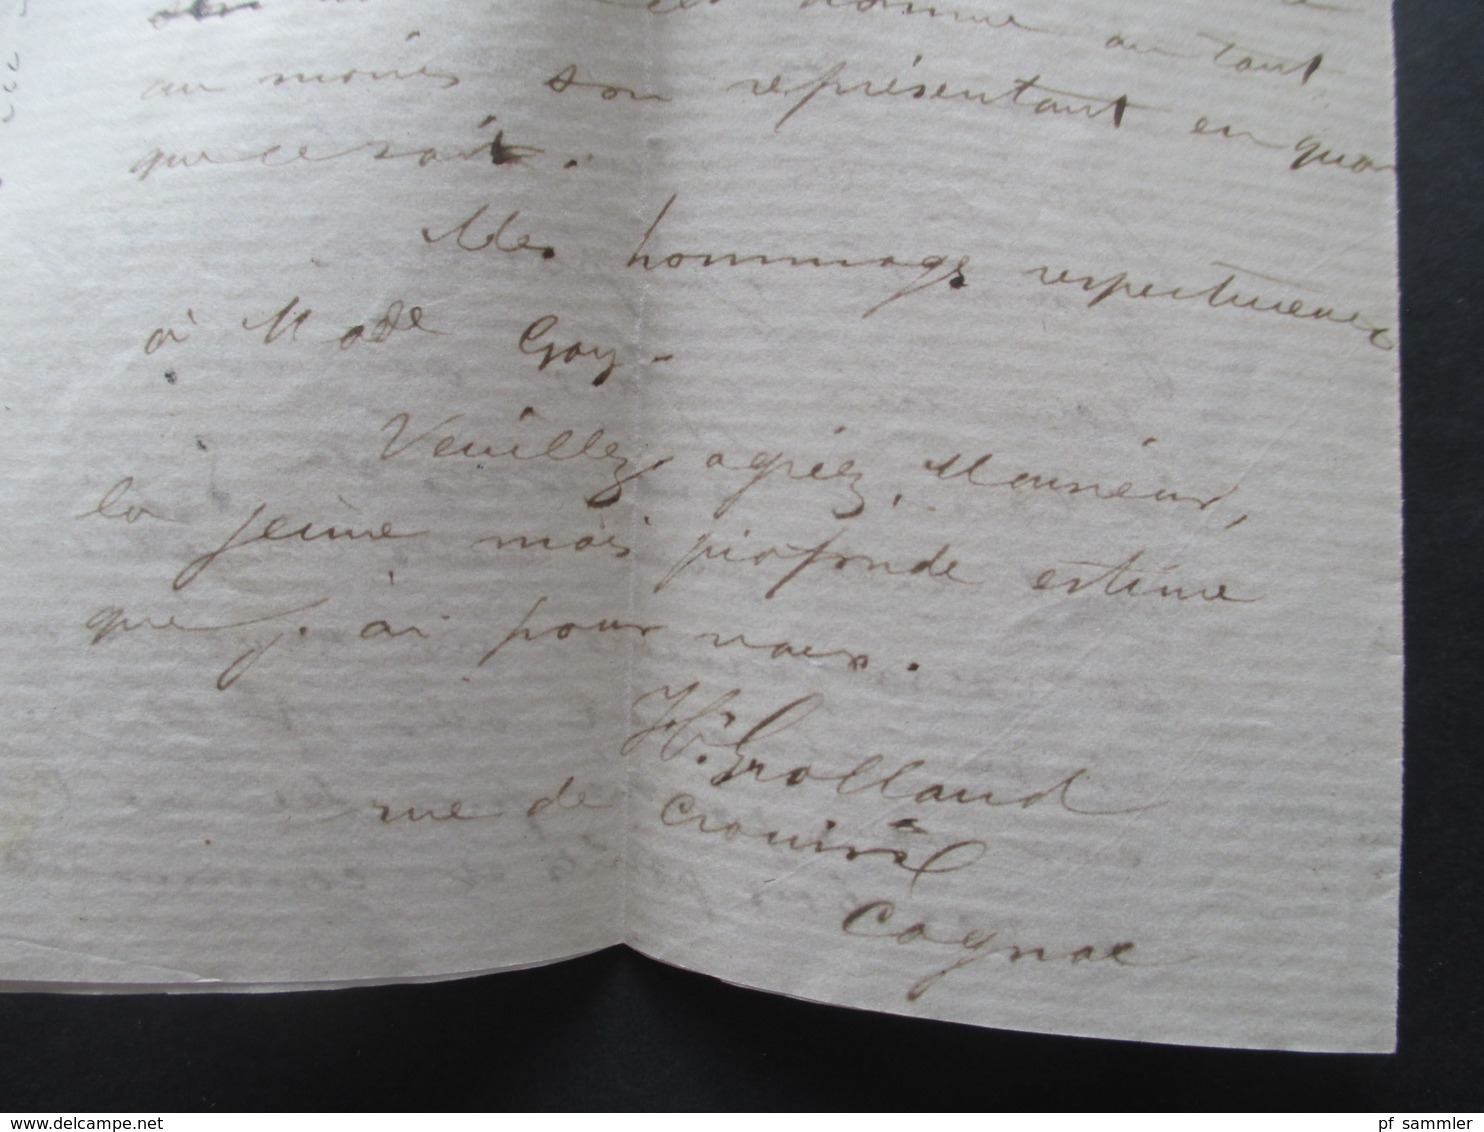 homme ou tout
au moins son représentant en quoi
que ce soit.
Mes hommages respectueux
à Made Gay.
Veuillez, agréez, Monsieur,
la jeune mais profonde estime
que j'ai pour vous.
Grolland
rue de Crouin
Cognac
© www.delcampe.net
pf_sammler